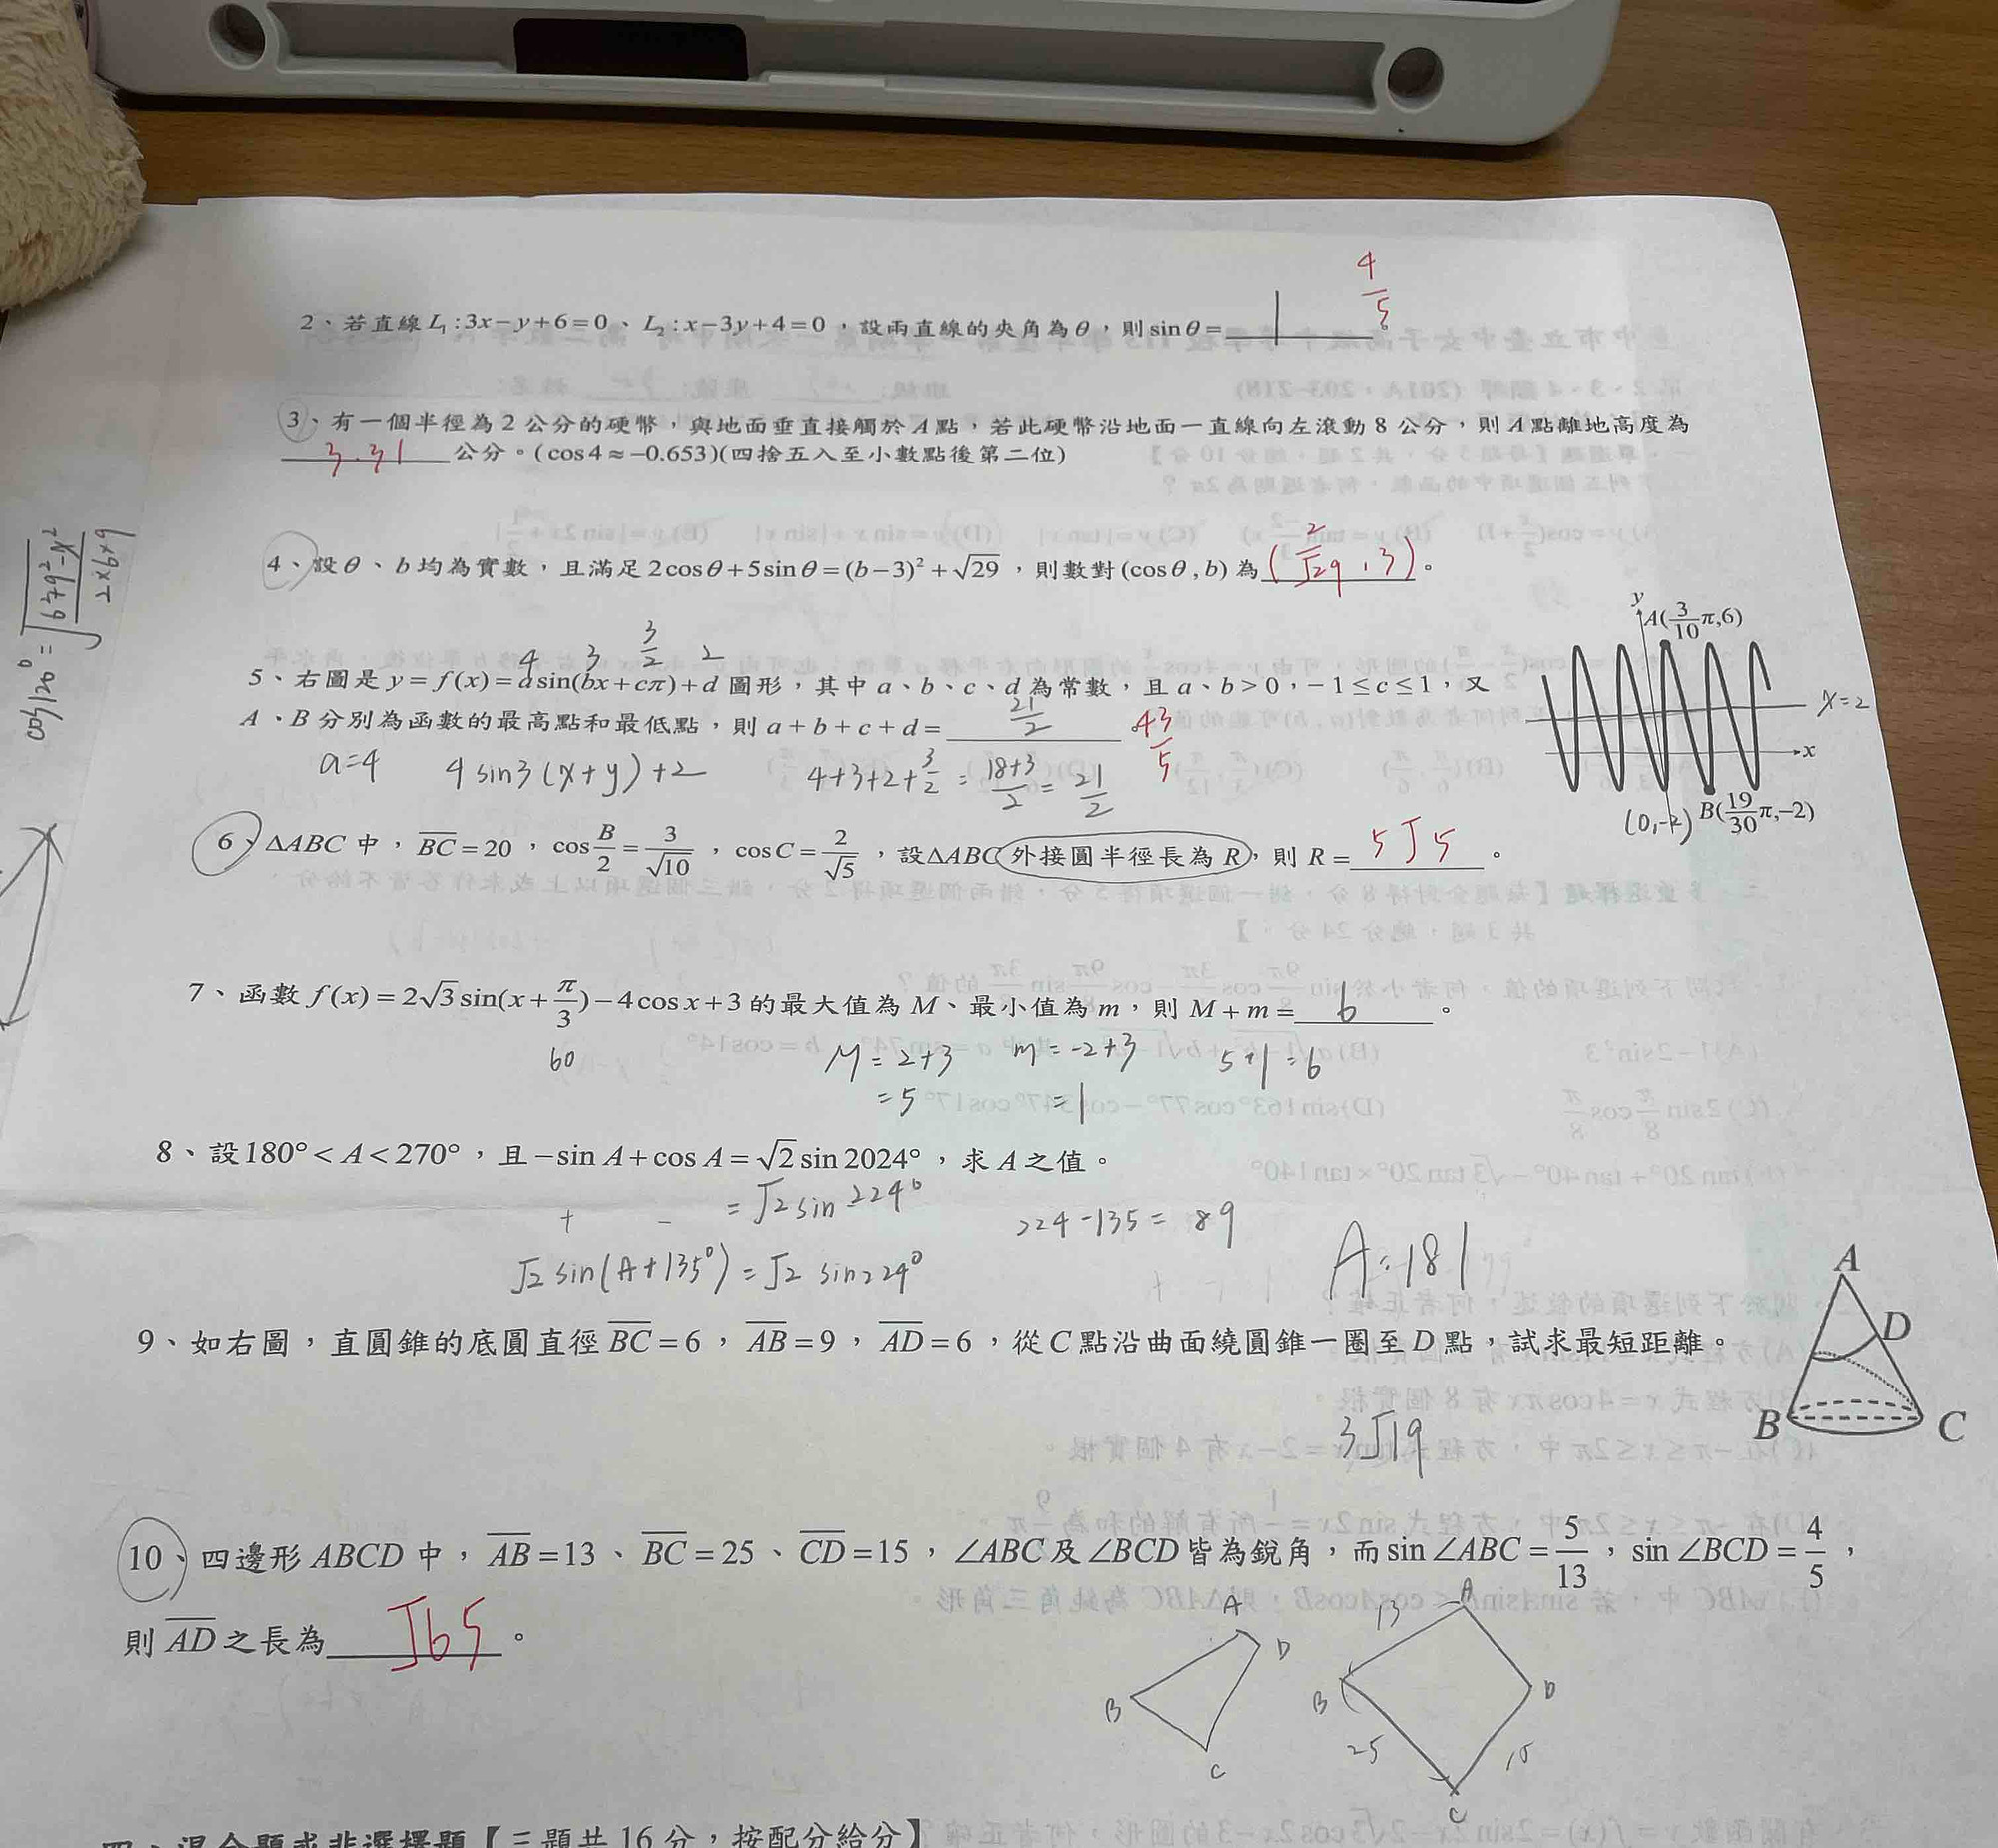 2、若直線 L₁:3x−y+6=0、L₂:x−3y+4=0,設兩直線的夾角為θ,則 sinθ= 1 。 4/5
3、有一個半徑為 2 公分的硬幣,與地面垂直接觸於 A 點,若此硬幣沿地面一直線向左滾動 8 公分,則 A 點離地高度為
3.31 公分。(cos4≈−0.653)(四捨五入至小數點後第二位)
cos120°=√(6²+9²−x²)/(2×6×9)
4、設θ、b 均為實數,且滿足 2cosθ+5sinθ=(b−3)²+√29,則數對(cosθ,b)為 (2/√29 , 3) 。
4 3 3/2 2
5、右圖是 y=f(x)=asin(bx+cπ)+d 圖形,其中 a、b、c、d 為常數,且 a、b>0,−1≤c≤1,又
A、B 分別為函數的最高點和最低點,則 a+b+c+d= 21/2 。 43/5
a=4 4sin3(x+y)+2 4+3+2+3/2=(18+3)/2=21/2
y
A(3/10π,6)
x=2
x
(0,-2) B(19/30π,−2)
6、ΔABC 中,BC=20,cos B/2=3/√10,cosC=2/√5,設ΔABC 外接圓半徑長為 R,則 R= 5√5 。
7、函數 f(x)=2√3sin(x+π/3)−4cosx+3 的最大值為 M、最小值為 m,則 M+m= 6 。
60 M=2+3 m=-2+3 5+1=6
=5 =1
8、設180°<A<270°,且−sinA+cosA=√2sin2024°,求 A 之值。
=√2sin224°
+ − 224-135=89
√2sin(A+135°)=√2 sin224° A=181
9、如右圖,直圓錐的底圓直徑 BC=6,AB=9,AD=6,從 C 點沿曲面繞圓錐一圈至 D 點,試求最短距離。
A
D
B C
3√19
10、四邊形 ABCD 中,AB=13、BC=25、CD=15,∠ABC 及∠BCD 皆為銳角,而 sin∠ABC=5/13,sin∠BCD=4/5,
則 AD 之長為 √65 。
A D B C
A 13 B D 25 15 C
四、混合題或非選擇題【三題共 16 分,按配分給分】